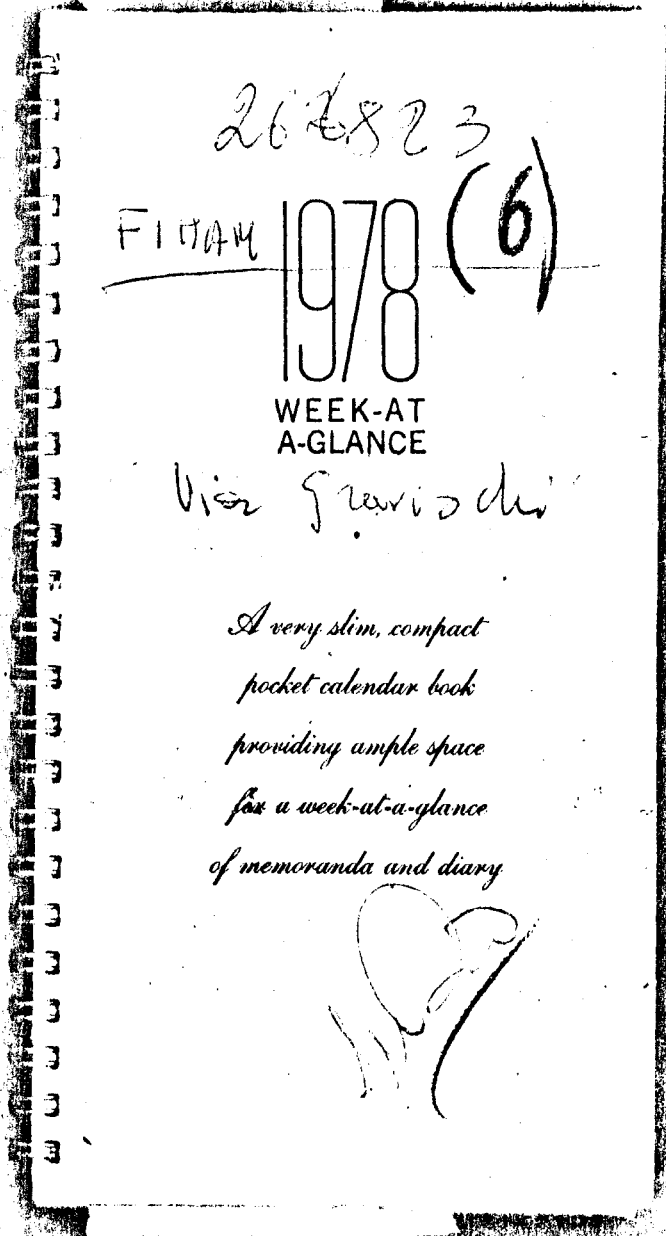 (6)
1978
WEEK-AT
A-GLANCE
A very slim, compact
pocket calendar book
providing ample space
for a week-at-a-glance
of memoranda and diary